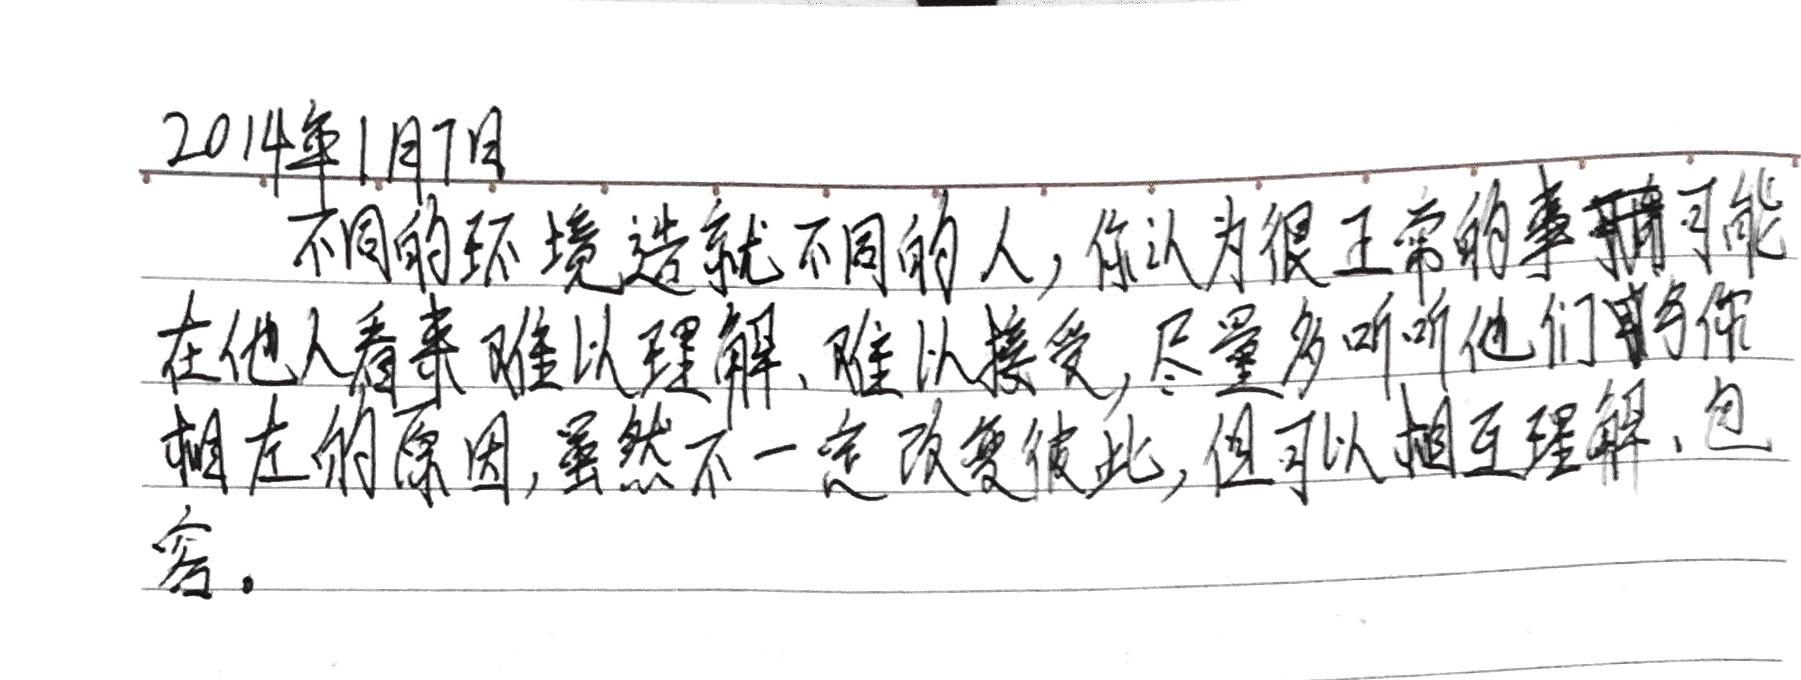 2014年1月7日
不同的环境造就不同的人，你认为很正常的事情可能
在他人看来难以理解、难以接受，尽量多听听他们与你
相左的原因，虽然不一定改变彼此，但可以相互理解、包
容.